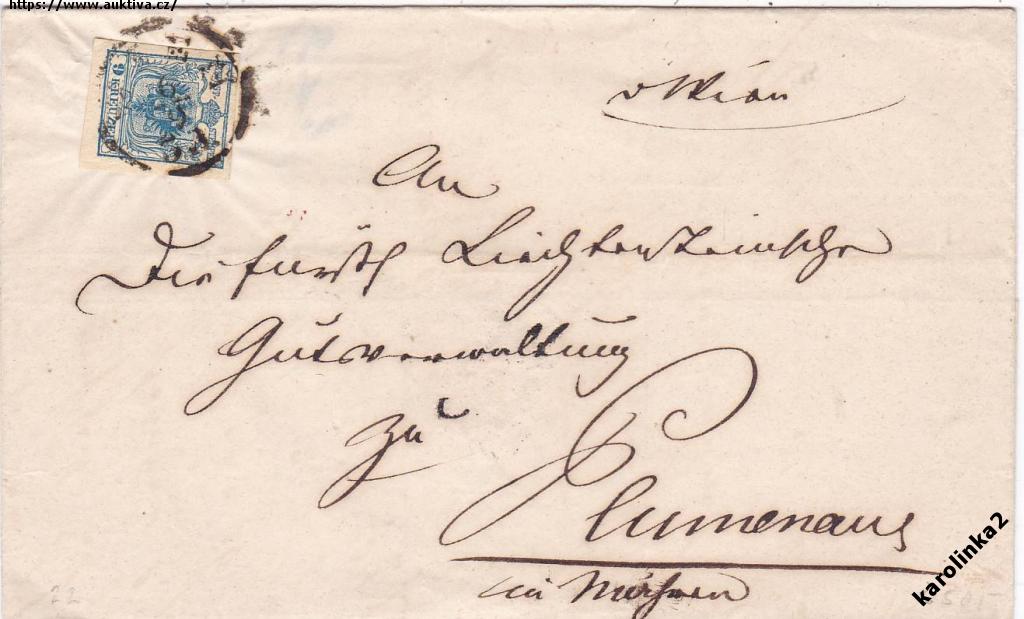 https://www.auktiva.cz/
9 KREUZER
v Wien
An
Die fürstl Liechtensteinsche
Gutsverwaltung
zu
Plumenau
in Mähren
karolinka2